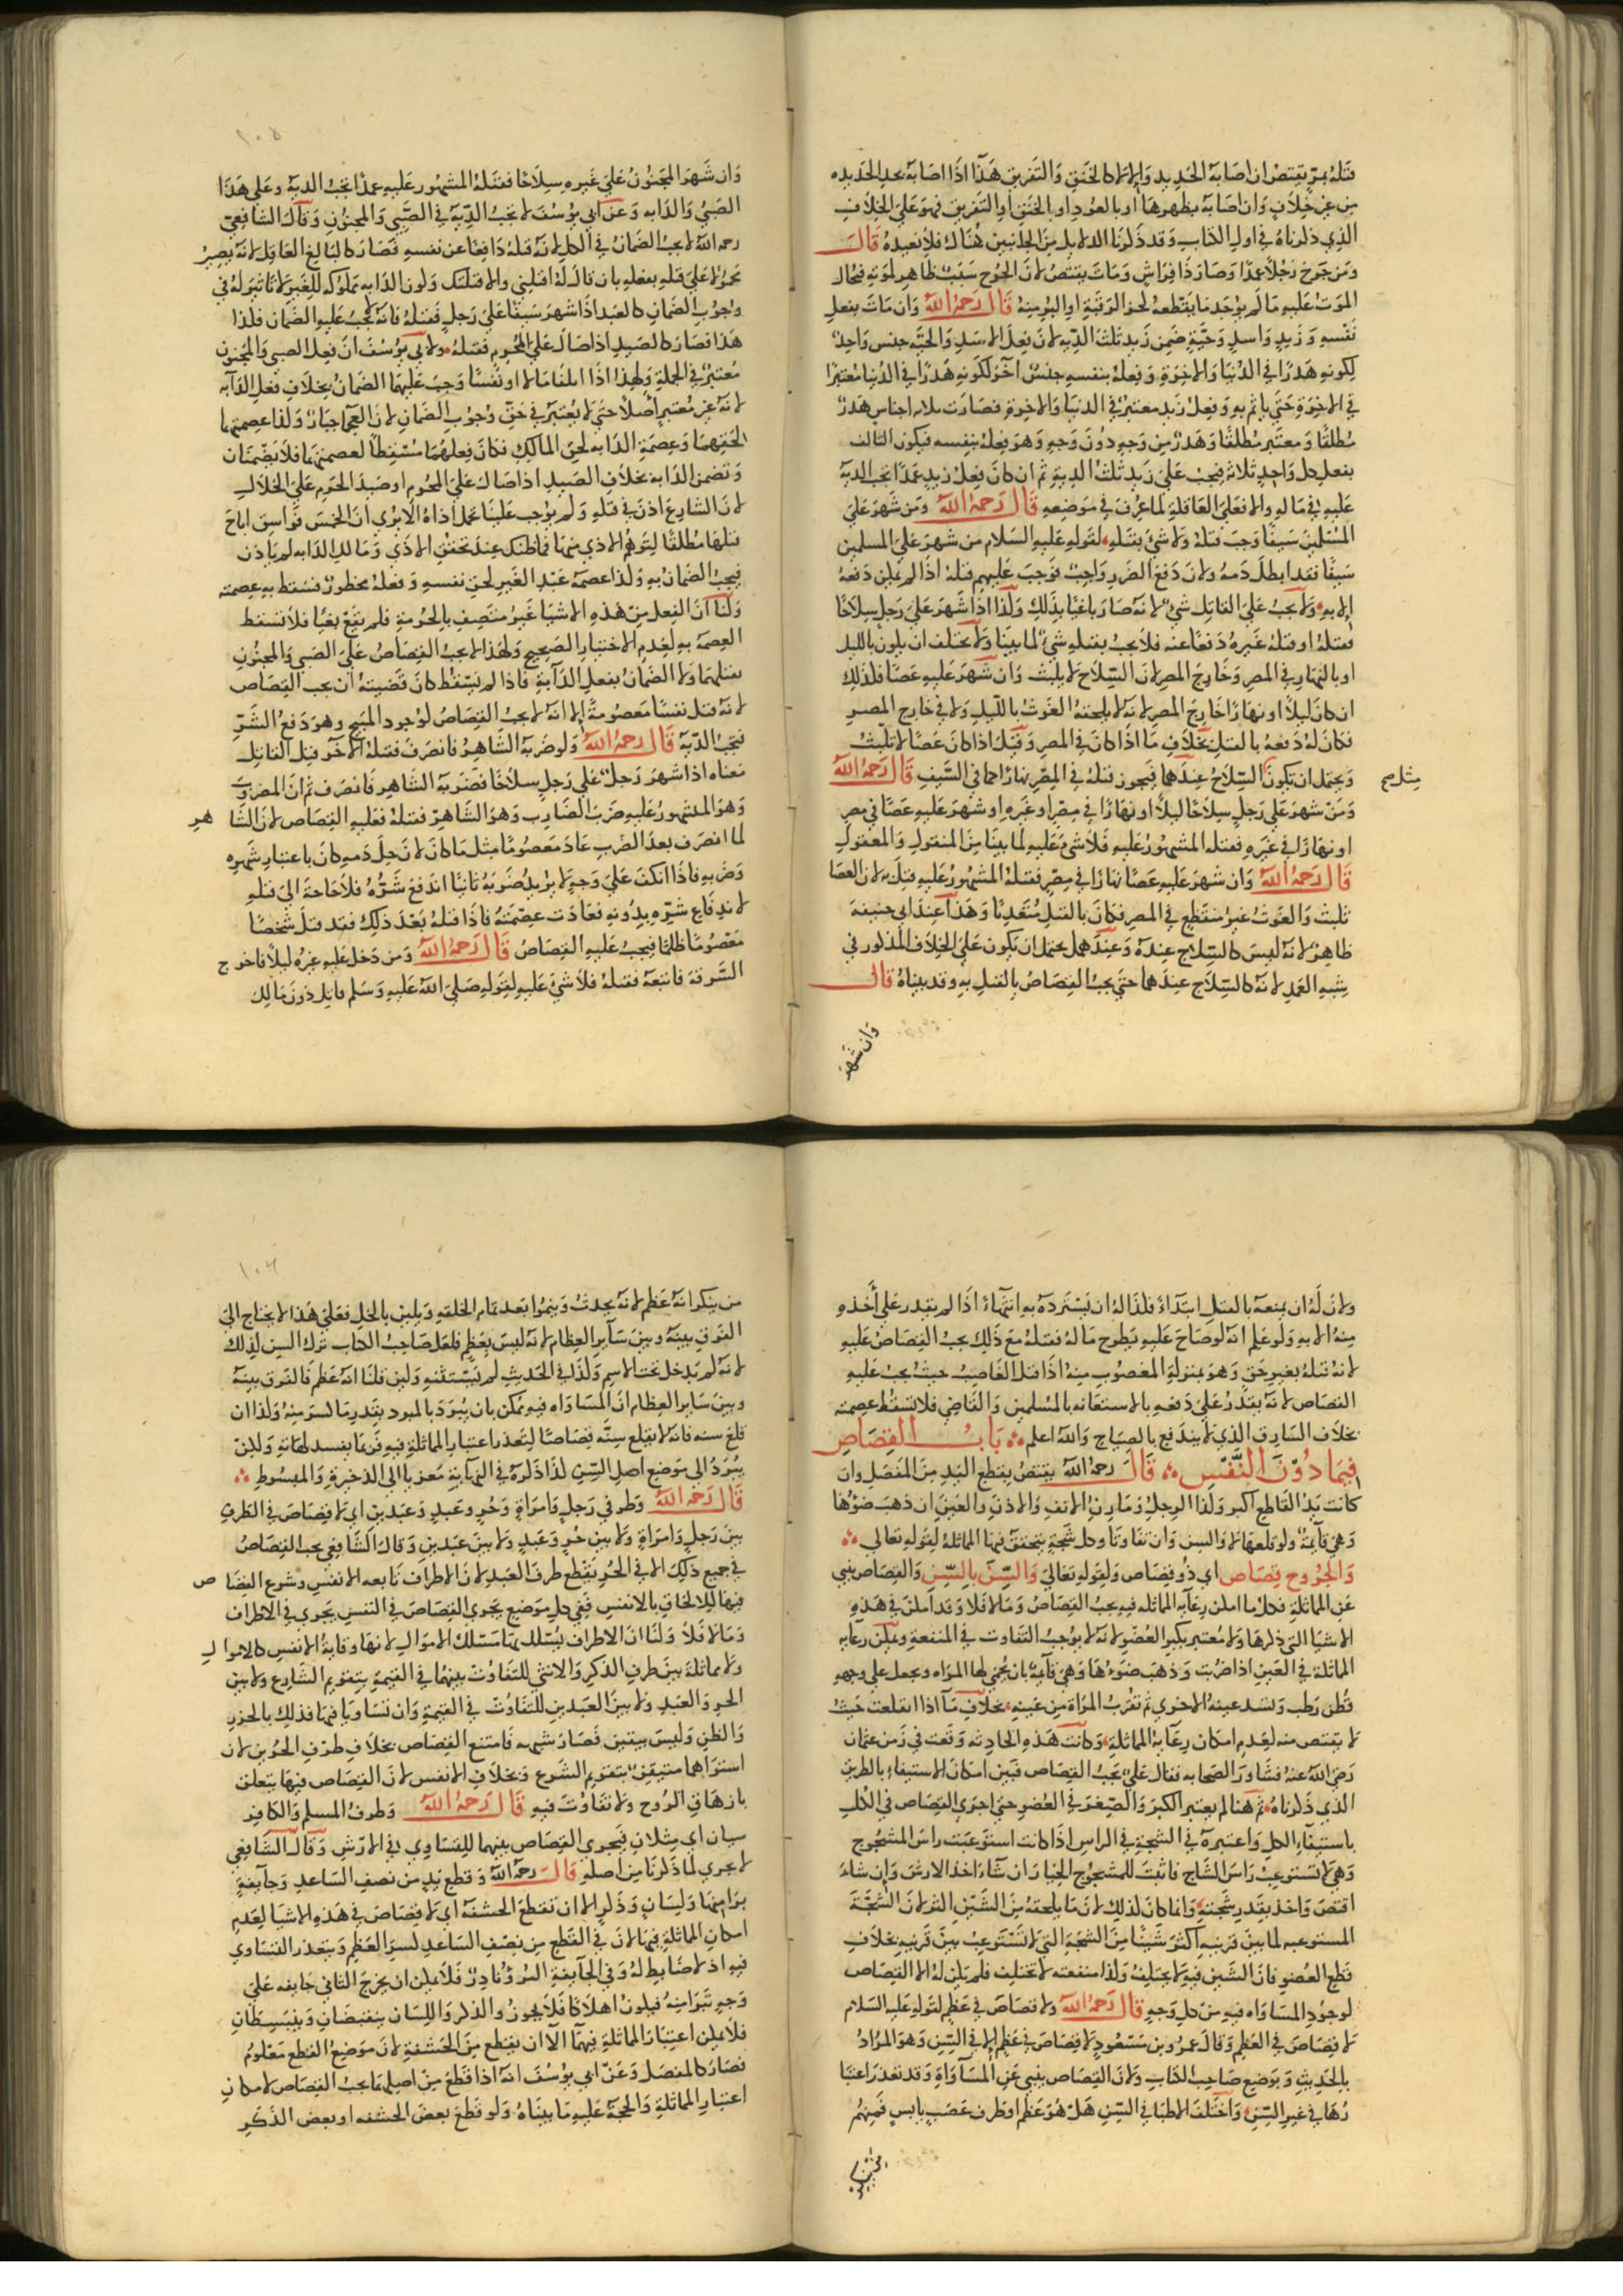 قتله بمرّ يقتص ان اصابه الحديد والا لا كالخنق والتغريق هذا اذا اصابه بحد الحديده
من غير خلاف وان اصابه بظهرها او بالعود او الخنق او التغريق فهو على الخلاف
الذي ذكرناه في اول الكتاب وقد ذكرنا الدلايل من الجانبين هناك فلا نعيده قال
ومن جرح رجلا عمدا وصار ذا فراش ومات يقتص لان الجرح سبب ظاهر لموته فيحال
الموت عليه مالم يوجد ما يقطعه لحز الرقبة او البؤ منه قال رحمه الله وان مات بفعل
نفسه وزيد واسد وحية ضمن زيد ثلث الديه لان فعل الاسد والحيه جنس واحد
لكونه هدرا في الدنيا والاخرة وفعله بنفسه جنس آخر لكونه هدرا في الدنيا معتبرا
في الاخرة حتى ياثم به وفعل زيد معتبر في الدنيا والاخرة فصارت ثلاثه اجناس هدر
مطلقا ومعتبر مطلقا وهدر من وجه دون وجه وهو فعله بنفسه فيكون التالف
بفعل كل واحد ثلاثه فيجب على زيد ثلث الدية ثم ان كان فعل زيد عمدا تجب الدية
عليه في ماله والا فعلى العاقلة لما عرف في موضعه قال رحمه الله ومن شهر على
المسلمين سيفا وجب قتله ولا شئ بقتله لقوله عليه السلام من شهر على المسلمين
سيفا فقد ابطل دمه ولان دفع الضرر واجب فوجب عليهم قتله اذا لم يمكن دفعه
الا به ولا يجب على القاتل شئ لانه صار باغيا بذلك ولذا اذا شهر على رجل سلاحا
فقتله او قتله غيره دفعا عنه فلا يجب بقتله شئ لما بينا ولا يختلف ان يكون بالليل
او بالنهار في المصر وخارج المصر لان السلاح لا يلبث وان شهر عليه عصا فكذلك
ان كان ليلا او نهارا خارج المصر لانه لا يلحقه الغوث بالليل ولا في خارج المصر
فكان له دفعه بالقتل بخلاف ما اذا كان في المصر وقيل اذا كان عصا لا تلبث
ويحتمل ان تكون السلاح عندهما فيجوز قتله في المصر نهارا كما في السيف قال رحمه الله
مثل صح
ومن شهر على رجل سلاحا ليلا او نهارا في مصر او غيره او شهر عليه عصا في مصر
او نهارا في غيره فقتله المشهور عليه فلا شئ عليه لما بينا من المنقول والمعقول
قال رحمه الله وان شهر عليه عصا نهارا في مصر فقتله المشهور عليه قتل به لان العصا
تلبث والغوث غير منقطع في المصر فكان بالقتل متعديا وهذا عند ابي حنيفة
ظاهر لانه ليس كالسلاح عنده وعندهما يحتمل ان يكون على الخلاف المذكور في
شبه العمد لانه كالسلاح عندهما حتى يجب القصاص بالقتل به وقد بيناه قال
وان شهر
١٠٥
وان شهر المجنون على غيره سلاحا فقتله المشهور عليه عمدا تجب الدية وعلى هذا
الصبي والدابه وعن ابي يوسف لا تجب الدية في الصبي والمجنون وقال الشافعي
رحمه الله لا يجب الضمان في الكل لانه قتله دافعا عن نفسه فصار كالبالغ العاقل لانه يصير
محمولا على قتله بفعله بان قال له اقتلني والا قتلتك وكون الدابه مملوكه للغير لا تاثير له في
وجوب الضمان كالعبد اذا شهر سيفا على رجل فقتله فانه لا يجب عليه الضمان فلذا
هذا فصار كالصيد اذا صال على المحرم فقتله ولابي يوسف ان فعل الصبي والمجنون
معتبر في الجملة ولهذا اذا اتلفا مالا او نفسا وجب عليهما الضمان بخلاف فعل الدآبه
لانه غير معتبر اصلا حتى لا يعتبر في حق وجوب الضمان لان العجما جبار وكذا عصمتهما
لحقهما وعصمة الدابه لحق المالك فكان فعلهما مسقطا لعصمتهما فلا يضمنان
وتضمن الدابه بخلاف الصيد اذا صال على المحرم او صيد الحرم على الحلال
لان الشارع اذن في قتله ولم يوجب علينا تحمل اذاه الا يرى ان الخمس فواسق اباح
قتلها مطلقا لتوهم الاذي منها فما ظنك عند تحقق الاذي ومالك الدابه لم ياذن
فيجب الضمان به وكذا عصمة عبد الغير لحق نفسه وفعله محظور فسقط به عصمته
ولنا ان الفعل من هذه الاشيا غير متصف بالحرمة فلم يقع بغيا فلا تسقط
العصمة به لعدم الاختيار الصحيح ولهذا لا يجب القصاص على الصبي والمجنون
بقتلهما ولا الضمان بفعل الدآبة فاذا لم يسقط كان قضيته ان يجب القصاص
لانه قتل نفسا معصومة الا انه لا يجب القصاص لوجود المبيح وهو دفع الشر
فيجب الدية قال رحمه الله ولو ضربه الشاهر فانصرف فقتله الآخر قتل القاتل
معناه اذا شهر رجل على رجل سلاحا فضربه الشاهر فانصرف ثم ان المضروب
وهو المشهور عليه ضرب الضارب وهو الشاهر فقتله فعليه القصاص لان الشا هر
لما انصرف بعد الضرب عاد معصوما مثل ما كان لان حل دمه كان باعتبار شهره
وضربه فاذا انكف على وجه لا يريد ضربه ثانيا اندفع شره فلا حاجة الى قتله
لاندفاع شره بدونه فعادت عصمته فاذا قتله بعد ذلك فقد قتل شخصا
معصوما ظلما فيجب عليه القصاص قال رحمه الله ومن دخل عليه غيره ليلا فاخر ج
السرقة فاتبعه فقتله فلا شئ عليه لقوله صلى الله عليه وسلم قاتل دون مالك
ولان له ان يمنعه بالقتل ابتداء فلذا له ان يسترده به انتهاء اذا لم يقدر على اخذه
منه الا به ولو علم انه لو صاح عليه يطرح ماله فقتله مع ذلك يجب القصاص عليه
لانه قتله بغير حق وهو بمنزلة المغصوب منه اذا قتل الغاصب حيث يجب عليه
القصاص لانه يقدر على دفعه بالاستعانه بالمسلمين والقاضي فلا تسقط عصمته
بخلاف السارق الذي لا يندفع بالصياح والله اعلم باب القصاص
فيما دون النفس قال رحمه الله يقتص بقطع اليد من المفصل وان
كانت يد القاطع اكبر وكذا الرجل ومارن الانف والاذن والعين ان ذهب ضوئها
وهي قآئمة ولو قلعها لا والسن وان تفاوتا وكل شجة يتحقق فيها المماثلة لقوله تعالى
والجروح قصاص اي ذو قصاص ولقوله تعالى والسن بالسن والقصاص ينبي
عن المماثلة فكل ما امكن رعآية المماثله فيه يجب القصاص وما لا فلا وقد امكن في هذه
الاشيا التي ذكرها ولا معتبر بكبر العضو لانه لا يوجب التفاوت في المنفعة ويمكن رعآيه
المماثلة في العين اذا ضربت وذهب ضوءها وهي قآئمة بان يحمى لها المراه ويجعل على وجهه
قطن رطب وتشد عينه الاخرى ثم تقرب المراة من عينه بخلاف ما اذا انقلعت حيث
لا يقتص منه لعدم امكان رعآية المماثلة وكانت هذه الحادثه وقعت في زمن عثمان
رضي الله عنه فشاور الصحابه فقال علي يجب القصاص فبين امكان الاستيفاء بالطريق
الذي ذكرناه ثم هنا لم يعتبر الكبر والصغر في العضو حتى اجري القصاص في الكل
باستيفاء الكل واعتبره في الشجة في الراس اذا كانت استوعبت راس المشجوج
وهي لا تستوعب راس الشاج فاثبت للمشجوج الخيار ان شآء اخذ الارش وان شاء
اقتص واخذ بقدر شجته وانما كان كذلك لان ما يلحقه من الشين اكثر لان الشجة
المستوعبه لما بين قرنيه اكثر شينا من الشجة التي لا تستوعب بين قرنيه بخلاف
قطع العضو فان الشين فيه لا يختلف وكذا منفعته لا تختلف فلم يكن له الا القصاص
لوجود المساواه فيه من كل وجه قال رحمه الله ولا قصاص في عظم لقوله عليه السلام
لا قصاص في العظم وقال عمر وبن مسعود لا قصاص في عظم الا في السن وهو المراد
بالحديث وبوضع صاحب الكتاب ولان القصاص ينبي عن المسآواة وقد تعذر اعتبا
رها في غير السن واختلف الاطبا في السن هل هو عظم او طرف عصب يابس فمنهم
من ينكر
١٠٦
من ينكر انه عظم لانه يحدث وينموا بعد تمام الخلقه ويلين بالخل فعلى هذا لا يحتاج الى
الفرق بينه وبين سآير العظام لانه ليس بعظم فلعل صاحب الكتاب ترك السن لذلك
لانه لم يدخل تحت الاسم وكذا في الحديث لم يستثنه ولين قلنا انه عظم فالفرق بينه
وبين ساير العظام ان المساواه فيه ممكن بان يبرد بالمبرد بقدر ما كسر منه ولذا ان
قلع سنه فانه لا يقلع سنه قصاصا لتعذر اعتبار المماثلة فيه فربما يفسد لهاته ولكن
يبرد الى موضع اصل السن كذا ذكره في النهاية معزيا الى الذخيرة والمبسوط
قال رحمه الله وطرفي رجل وامراة وحر وعبد وعبدين اي لا قصاص في الطرف
بين رجل وامراة ولا بين حر وعبد ولا بين عبدين وقال الشافعي يجب القصاص
في جميع ذلك الا في الحر يقطع طرف العبد لان الاطراف تابعه الانفس وشرع القصا ص
فيها للالحاق بالانفس ففي كل موضع يجري القصاص في النفس يجري في الاطراف
وما لا فلا ولنا ان الاطراف يسلك بها مسلك الاموال لانها وقاية الانفس كالاموا ل
ولا مماثلة بين طرف الذكر والانثى للتفاوت بينهما في القيمة بتقويم الشارع ولا بين
الحر والعبد ولا بين العبدين للتفاوت في القيمة وان تساويا فيها فذلك بالحزر
والظن وليس بيقين فصار شبهه فامتنع القصاص بخلاف طرف الحرين لان
استواهما متيقن بتقويم الشرع وبخلاف الانفس لان القصاص فيها يتعلق
بازهاق الروح ولا تفاوت فيه قال رحمه الله وطرف المسلم والكافر
سيان اي مثلان فيجري القصاص بينهما للتساوي في الارش وقال الشافعي
لا يجري لما ذكرنا من اصله قال رحمه الله وقطع يد من نصف الساعد وجآيفة
برا منها ولسان وذكر الا ان تقطع الحشفة اي لا قصاص في هذه الاشيا لعدم
امكان المماثلة فيها لان في القطع من نصف الساعد لسر العظم ويتعذر التساوي
فيه اذ لا ضابط له وفي الجآيفة البرؤ نادر فلا يمكن ان يخرج الثاني جايفه على
وجه تبرا منه فيكون اهلاكا فلا يجوز والذكر واللسان ينقبضان وينبسطان
فلا يمكن اعتبار المماثلة فيهما الا ان يقطع من الحشفة لان موضع القطع معلوم
فصار كالمفصل وعن ابي يوسف انه اذا قطع من اصلهما يجب القصاص لامكان
اعتبار المماثلة والحجة عليه ما بيناه ولو قطع بعض الحشفه او بعض الذكر